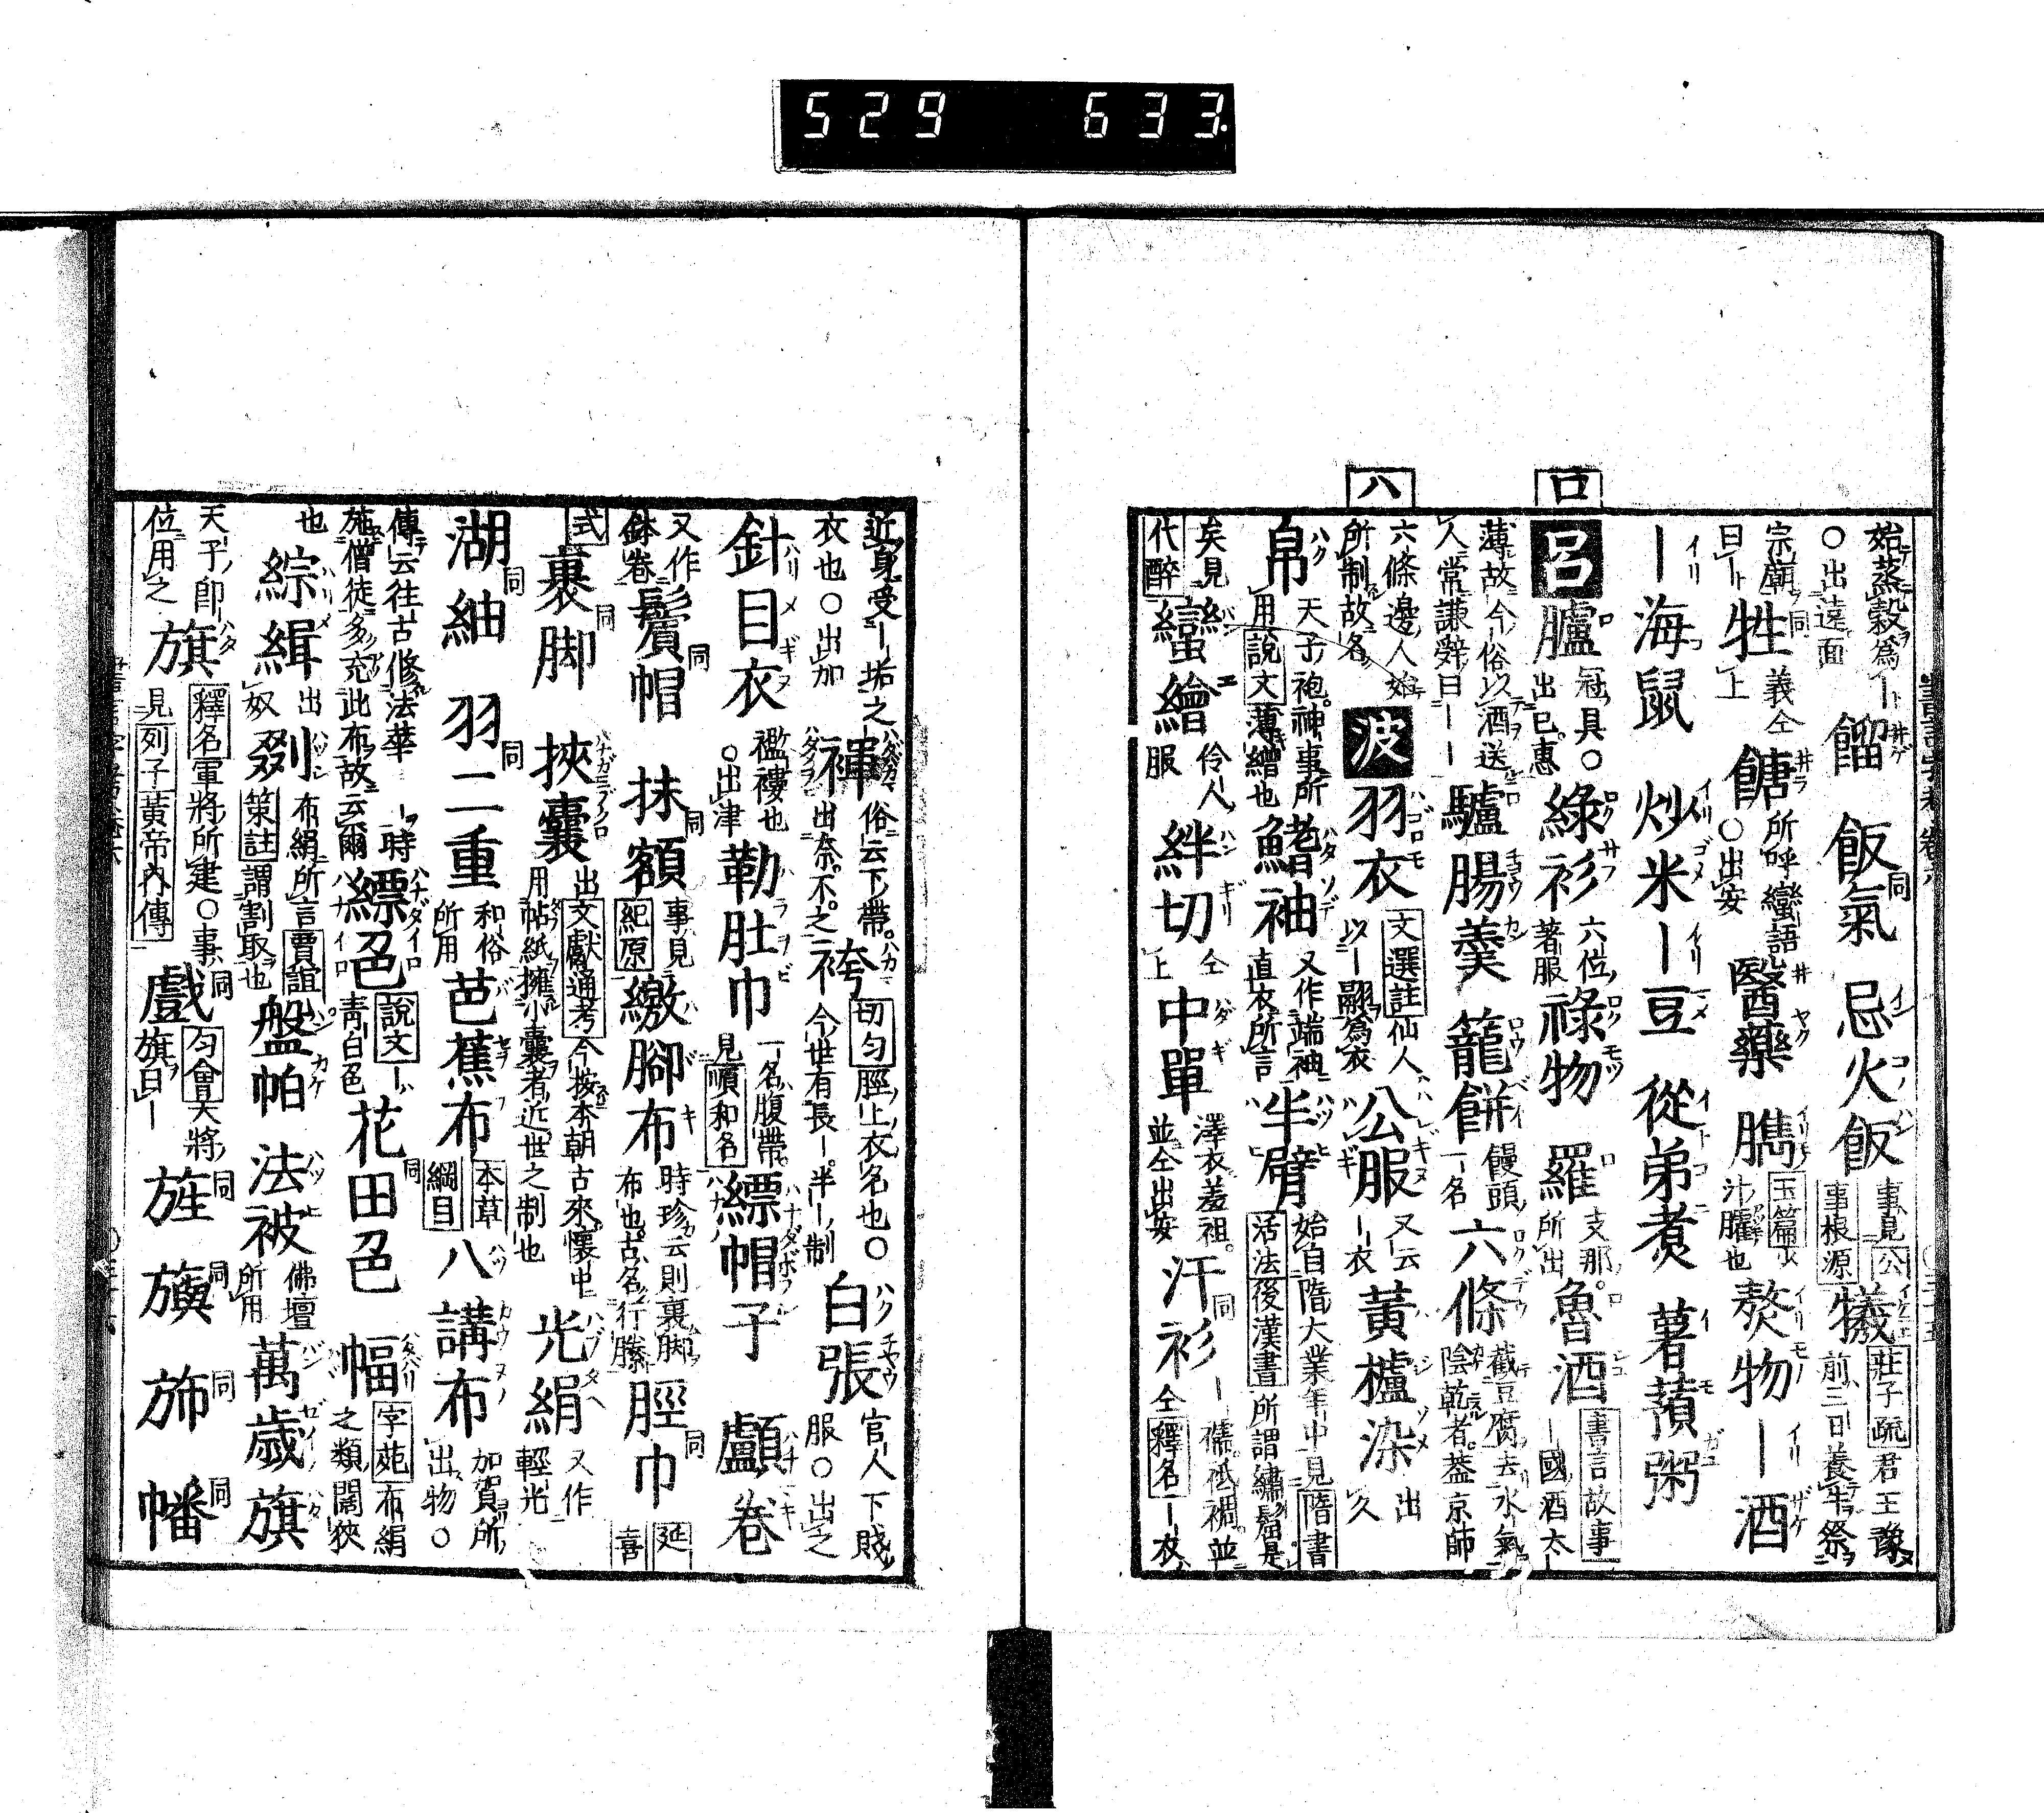 529 633.
ロ
ハ
始蒸穀為ー
○出遠面
餾 飯氣 忌火飯 事見公事根源 犧 莊子疏君王豫前三日養牛祭
宗廟曰ー 牲 義仝上 餹 所呼蠻語○出安 醫藥 臇 玉篇 汁臛也 熬物 ー酒
ー海鼠 炒米 ー豆 從弟煮 薯蕷粥
呂 臚 冠具○出已惠 綠衫 六位著服 祿物 羅 支那所出 魯酒 書言故事 ー國酒太
薄故今俗以酒送人常謙辭曰ーー 驢腸羹 籠餅 饅頭一名 六條 截豆腐去水氣陰乾者蓋京師
六條邊人始所制故名 波 羽衣 文選註仙人以ー翮為衣 公服 又云ー衣 黃櫨染 出久
帛 天子袍神事所用說文薄繒也 鰭袖 又作端袖直衣所言 半臂 始自隋大業年中見隋書活法後漢書所謂繡䘿是
矣見代醉 蠻繪 伶人服 絆切 仝上 中單 澤衣羞袒並仝出安 汗衫 ー襦袛裯並仝釋名ー衣
近身受ー垢之衣也○出加 褌 俗云下帶出奈不之 袴 切匀脛上衣名也○今世有長ー半ー制 白張 官人下賤服○出之
針目衣 襤褸也○出津 勒肚巾 一名腹帶見順和名 縹帽子 顱卷
又作鉢卷 鬢帽 抹額 事見紀原 繳腳布 時珍云則裹脚布也古名行縢 脛巾 延喜
式 裹脚 挾囊 出文獻通考今按本朝古來懷中用帖紙擁小囊者近世之制也 光絹 又作輕光
湖紬 羽二重 和俗所用 芭蕉布 本草綱目 八講布 加賀所出物○
傳云往古修法華ー時施僧徒多充此布故云爾 縹色 說文ー青白色 花田色 幅 字苑布絹之類闊狹
也 綜緝 出奴 剟 布絹所言賈誼策註謂割取也 盤帕 法被 佛壇所用 萬歲旗
天子卽位用之 旗 釋名軍將所建○事見列子黃帝內傳 戲 匀會大將旗曰ー 旌 旟 斾 幡